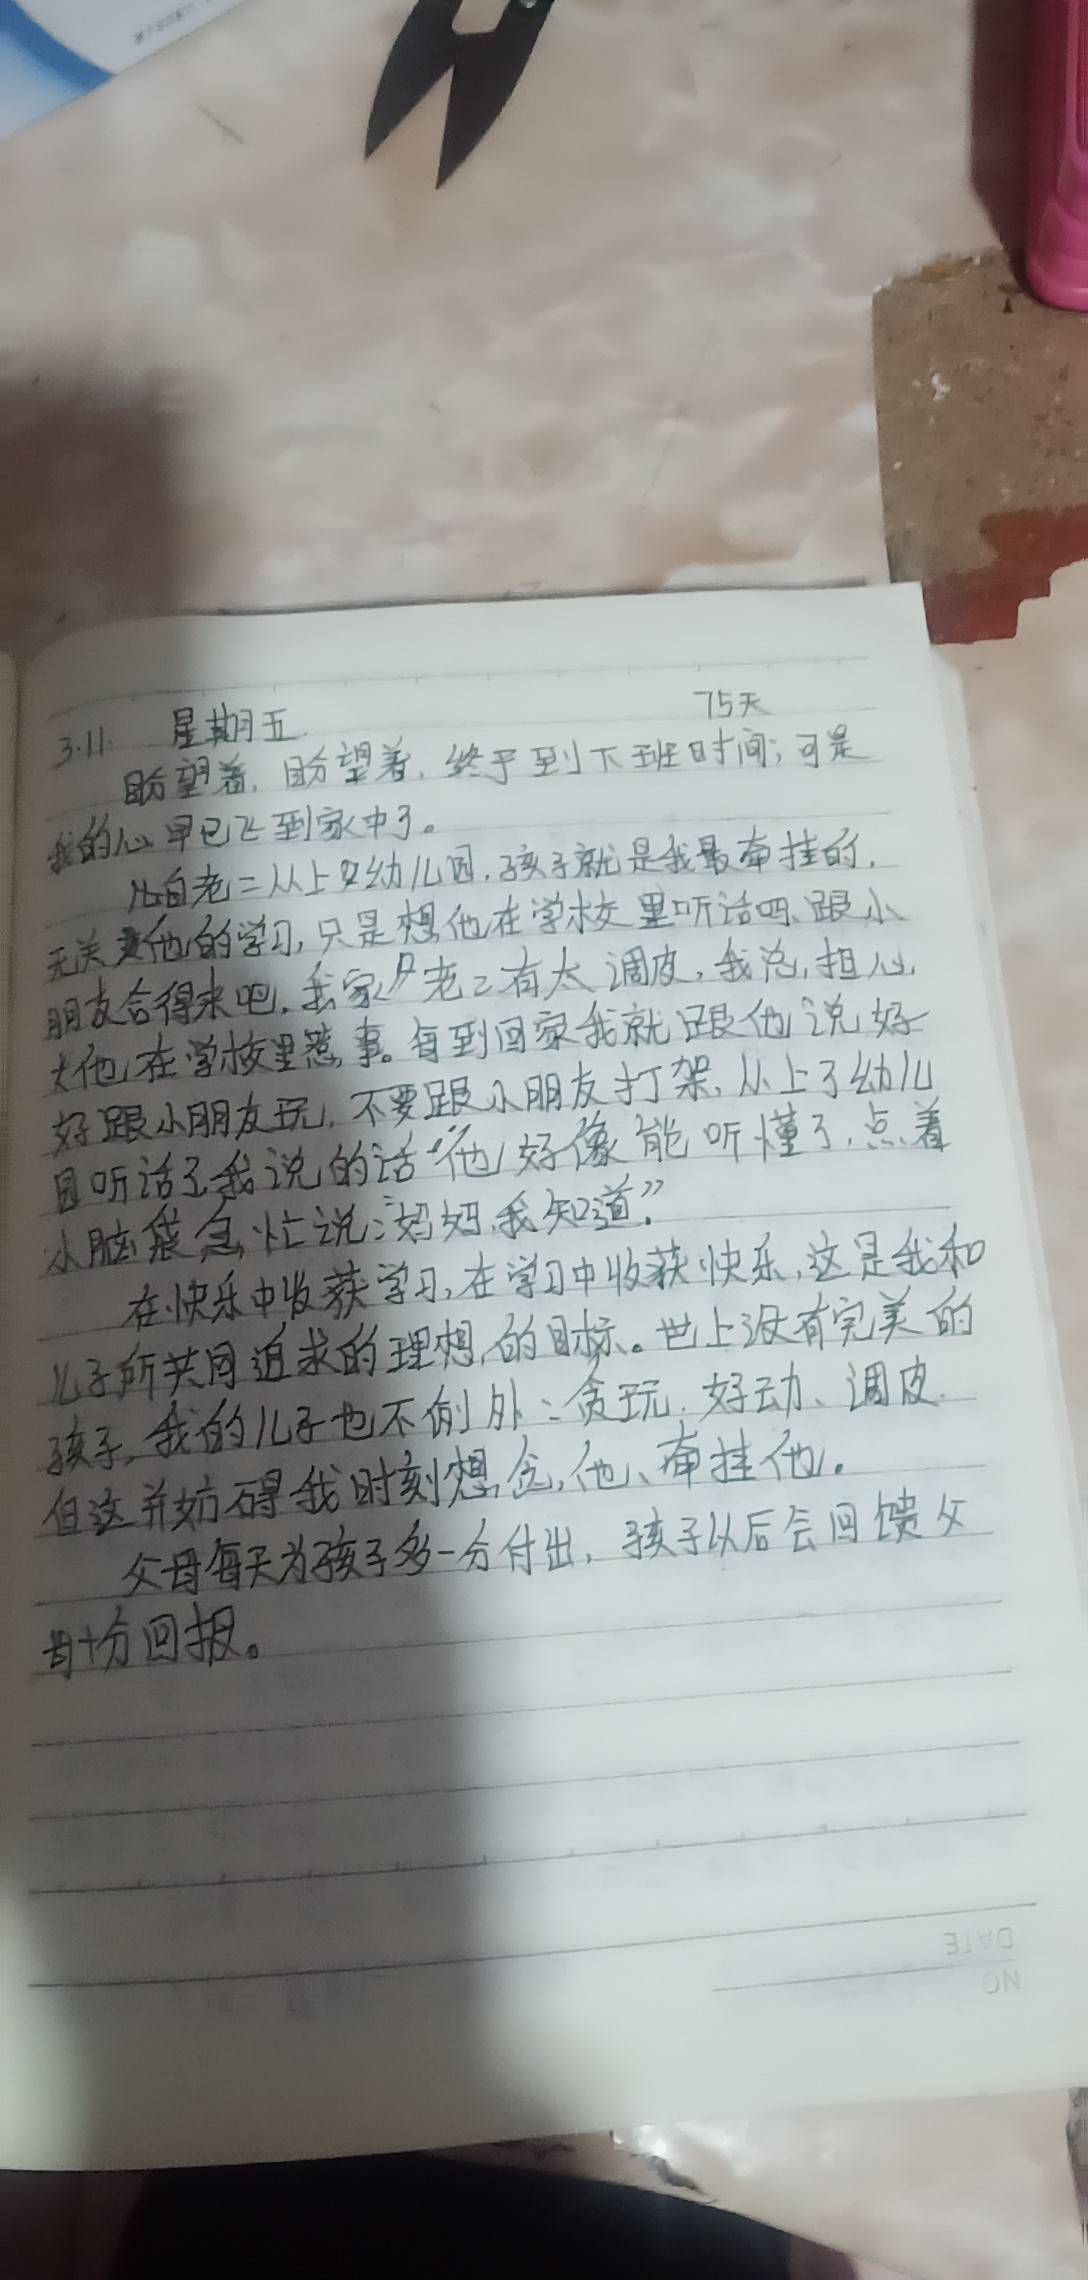 3.11 星期五 75天
盼望着,盼望着,终于到下班时间;可是
我的心早已飞到家中了。
自老二从上幼儿园,孩子就是我最牵挂的,
无关他的学习,只是想他在学校里听话吗、跟小
朋友合得来吧,我家老二有太调皮,我总担心
他在学校里惹事。每到回家我就跟他说好
好跟小朋友玩,不要跟小朋友打架,从上了幼儿
园听话了,我说的话“他好像能听懂了,点着
小脑袋急忙说:妈妈,我知道”
在快乐中收获学习,在学习中收获快乐,这是我和
儿子所共同追求的理想的目标。世上没有完美的
孩子,我的儿子也不例外:贪玩、好动、调皮.
但这并妨碍我时刻想念他、牵挂他.
父母每天为孩子多一分付出,孩子以后会回馈父
母十分回报。
DATE
NO